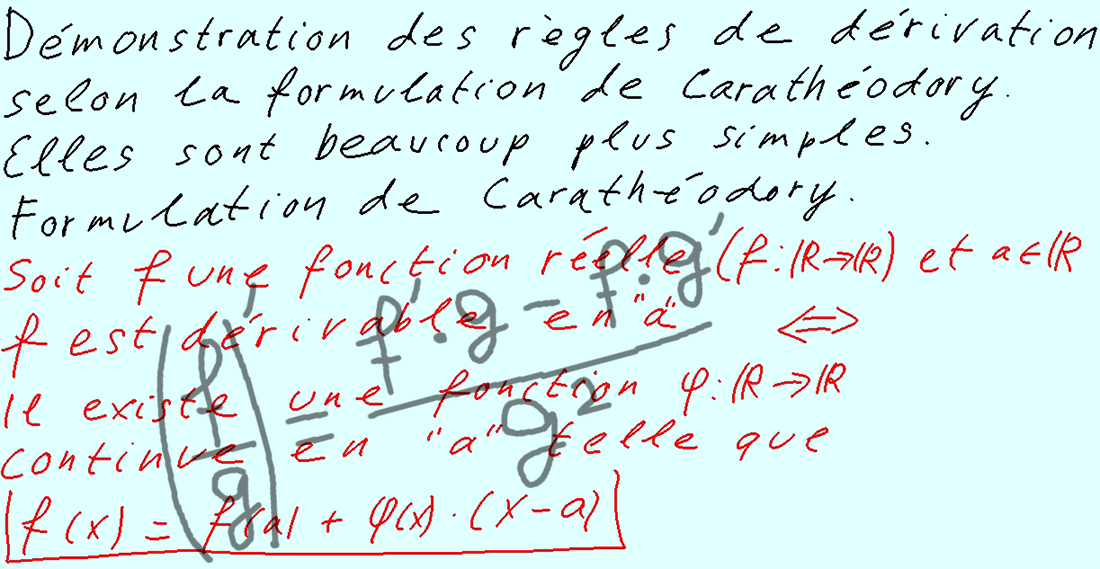 Démonstration des règles de dérivation
selon la formulation de Carathéodory.
Elles sont beaucoup plus simples.
Formulation de Carathéodory.
Soit f une fonction réelle (f:ℝ→ℝ) et a∈ℝ
f est dérivable en "a" ⇔
Il existe une fonction φ:ℝ→ℝ
continue en "a" telle que
f(x) = f(a) + φ(x)·(x-a)
(f/g)' = (f'·g - f·g')/g²